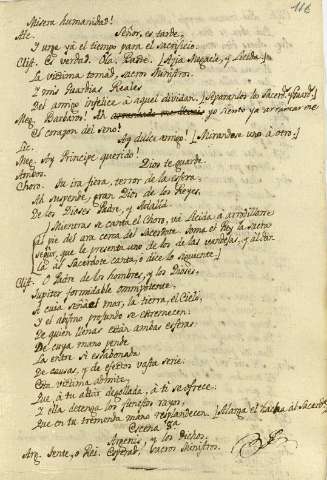 116
Misera humanidad!
Alc. Señor, es tarde,
Y urge yá el tiempo para el sacrificio.
Clist. Es verdad. Ola, Padre. [Aqui Megacle, y Licida.]
La victima tomad, sacros Ministros.
Y mis Guardias Reales
Del amigo infelice à aquel dividan. [Separanlos los Sacerd. y Guard.]
Meg. Barbaros! Ah yo siento ya arrancarme
El corazon del seno!
Lic. Ay dulce amigo! [Mirandose uno à otro.]
Meg. Ay Principe querido!
Ambos. Dios te guarde.
Choro. Su ira fiera, terror de la esfera,
Ah suspende, gran Dios de los Reyes,
De los Dioses Padre, y Deidad.
[Mientras se canta el Choro, vá Licida à arrodillarse
al pie del ara cerca del Sacerdote. Toma el Rey la sacra
segur, que le presenta uno de los de las vandejas, y al dar
la al Sacerdote canta, ó dice lo siguiente.]
Clist. O Padre de los hombres, y los Dioses,
Jupiter formidable omnipotente,
A cuia señal el mar, la tierra, el Cielo,
Y el abysmo profundo se extremecen:
De quien llenas están ambas esferas:
De cuya mano pende
La entre si eslabonada
De causas, y de efectos vasta serie:
Esta victima admite,
Que, à tu altar degollada, à ti se ofrece.
Y ella detenga los funestos rayos,
Que en tu tremenda mano resplandecen. [Alarga el hacha al Sacerdote]
Escena 8ª
Argenis, y los Dichos.
Arg. Tente, o Rei. Esperad, sacros Ministros.